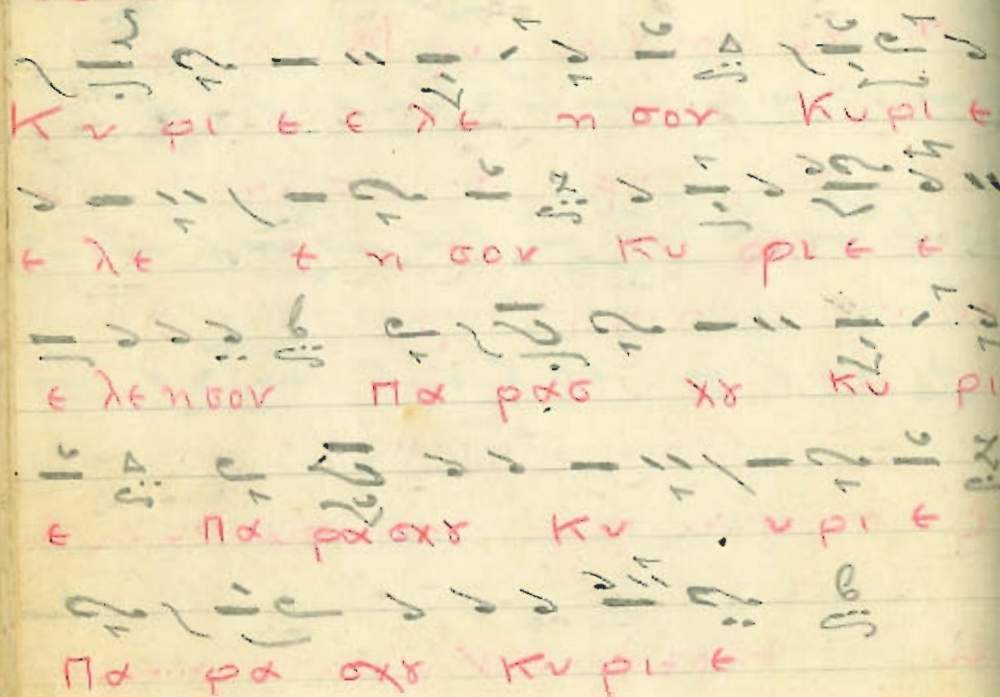 Κ υ ρι ε ε λε η σον Κυρι ε
ε λε ε η σον Κυ ρι ε ε
ε λεησον Πα ρασ χȣ Κυ ρι
ε Πα ρασχȣ Κυ υ ρι ε
Πα ρα σχȣ Κυ ρι ε